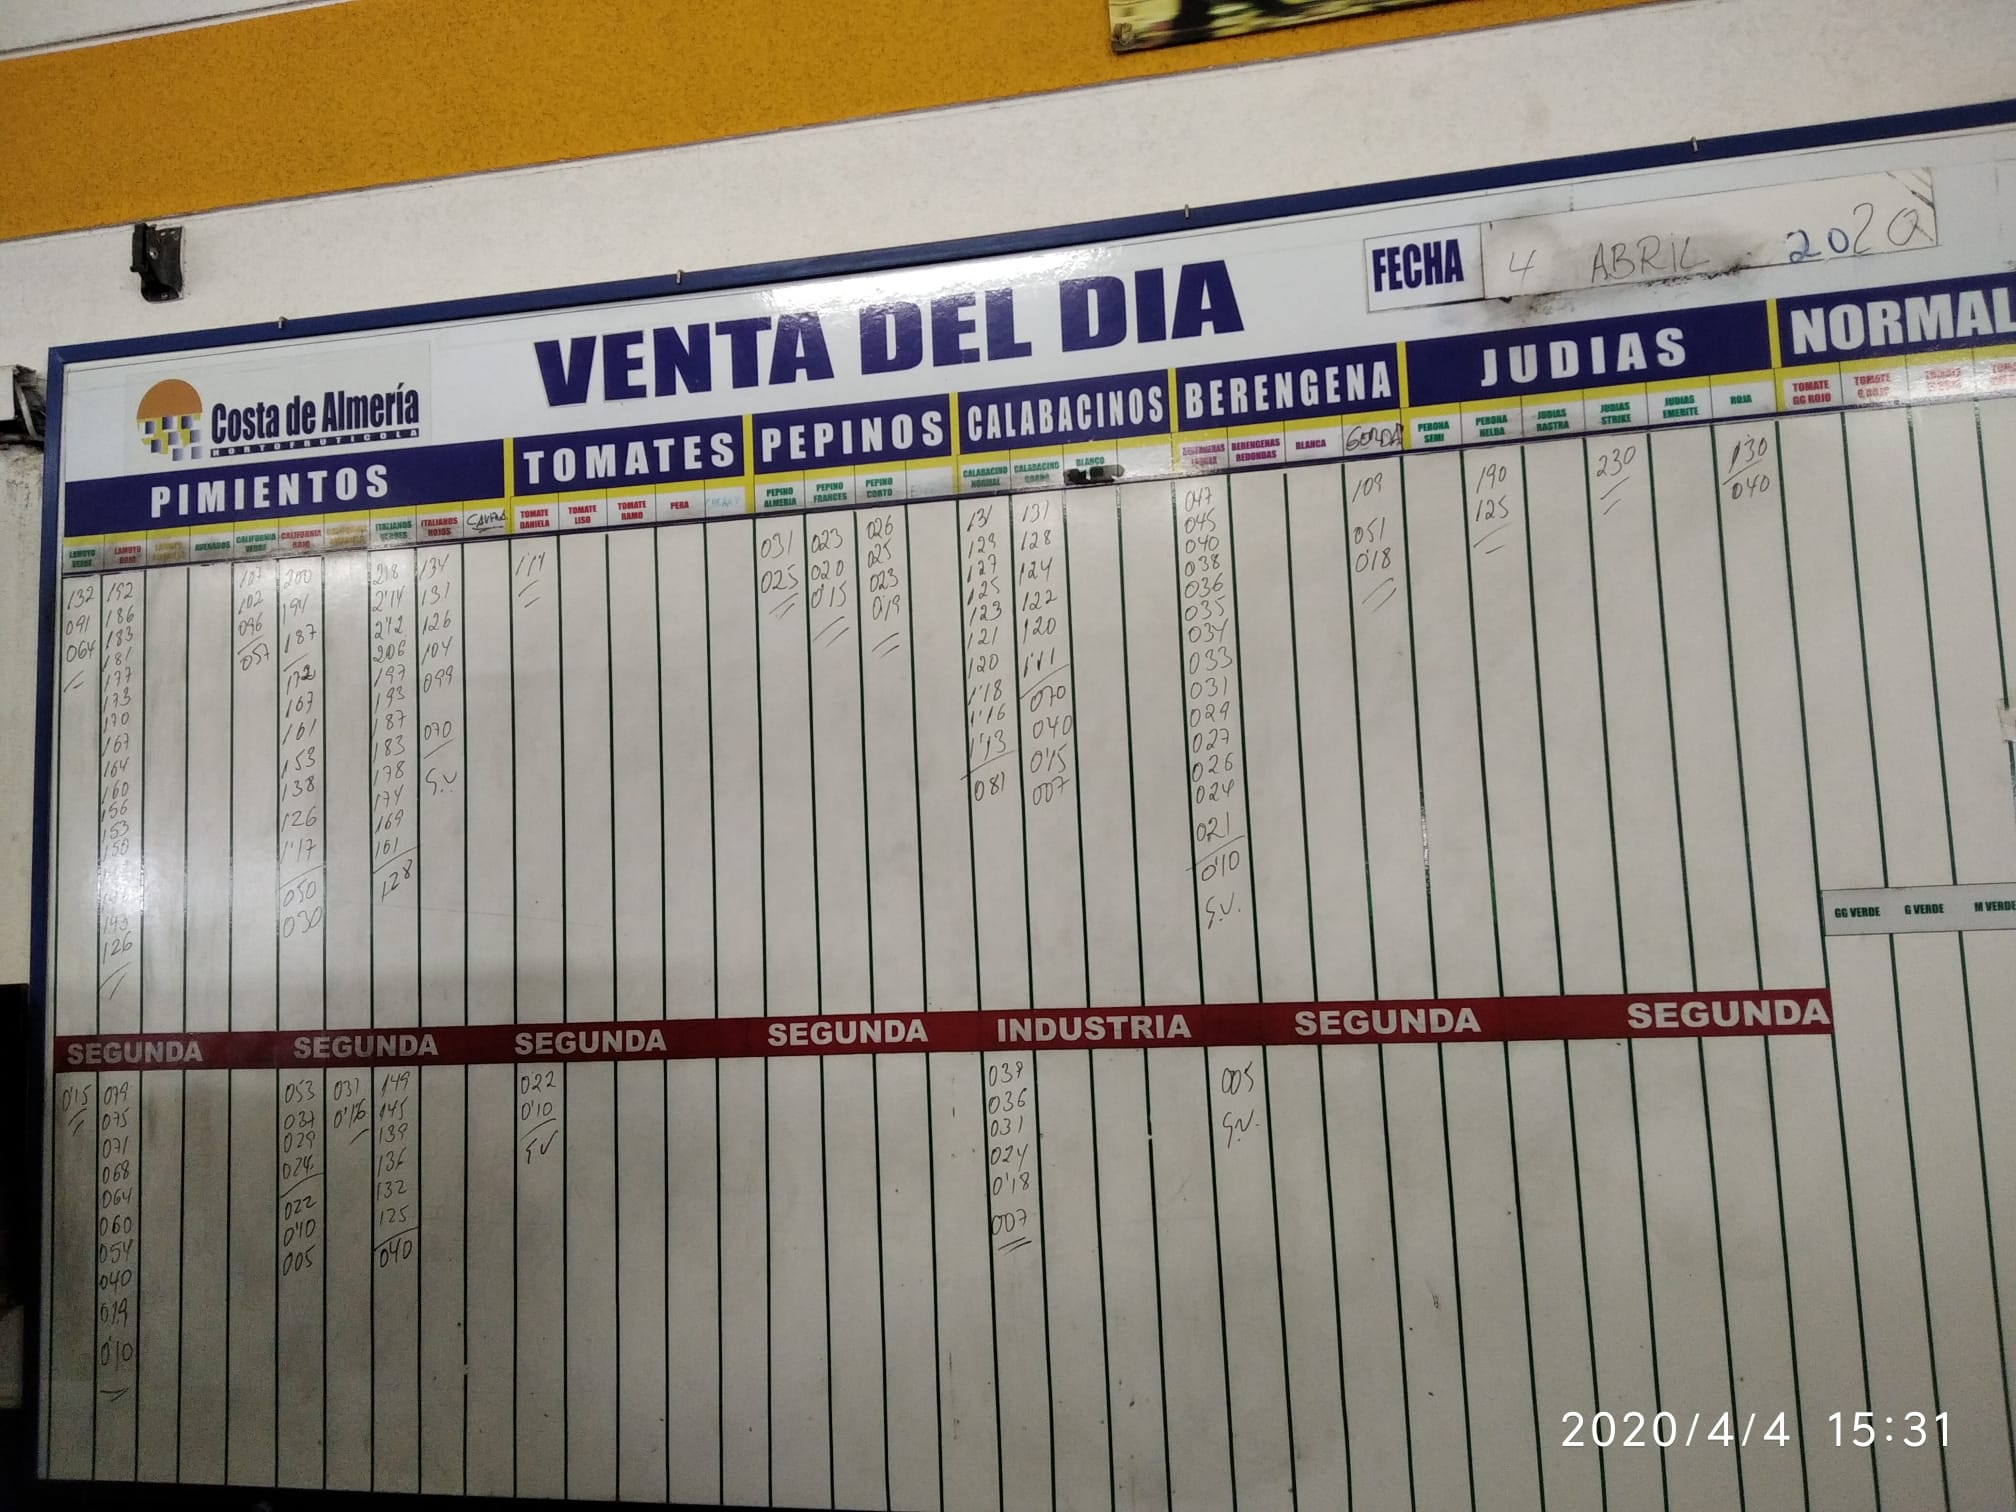 FECHA 4 ABRIL 2020
VENTA DEL DIA
Costa de Almería
HORTOFRUTICOLA
PIMIENTOS TOMATES PEPINOS CALABACINOS BERENGENA JUDIAS NORMAL
LAMUYO VERDE
LAMUYO ROJO
ASURADOS
CALIFORNIA VERDE
CALIFORNIA ROJO
ITALIANOS VERDES
ITALIANOS ROJOS
TOMATE DANIELA
TOMATE LISO
TOMATE RAMO
PERA
PEPINO ALMERIA
PEPINO FRANCES
PEPINO CORTO
CALABACINO NORMAL
CALABACINO GORDO
BLANCO
BERENGENAS REDONDAS
BLANCA
GORDA
PERONA SEMI
PERONA HELDA
JUDIAS RASTRA
JUDIAS STRIKE
JUDIAS EMERITE
ROJA
TOMATE GG ROJO
TOMATE G ROJO
132
091
064
192
186
183
181
177
173
170
167
164
160
156
153
150
126
107
102
096
057
200
194
187
172
167
161
153
138
126
1'17
050
030
218
2'14
2'12
206
197
193
187
183
178
174
169
161
128
134
131
126
104
099
070
S.V.
031
025
023
020
0'15
026
025
023
0'19
131
129
127
125
123
121
120
1'18
1'16
1'13
081
131
128
124
122
120
1'11
070
040
0'15
007
047
045
040
038
036
035
034
033
031
029
027
026
024
021
0'10
S.V.
109
051
0'18
190
125
230
130
040
GG VERDE G VERDE M VERDE
SEGUNDA SEGUNDA SEGUNDA SEGUNDA INDUSTRIA SEGUNDA SEGUNDA
0'15
079
075
071
068
064
060
054
040
019
0'10
053
037
029
024
022
0'10
005
031
0'16
149
145
139
136
132
125
040
022
0'10
S.V
037
036
031
024
0'18
007
005
S.V.
2020/4/4 15:31